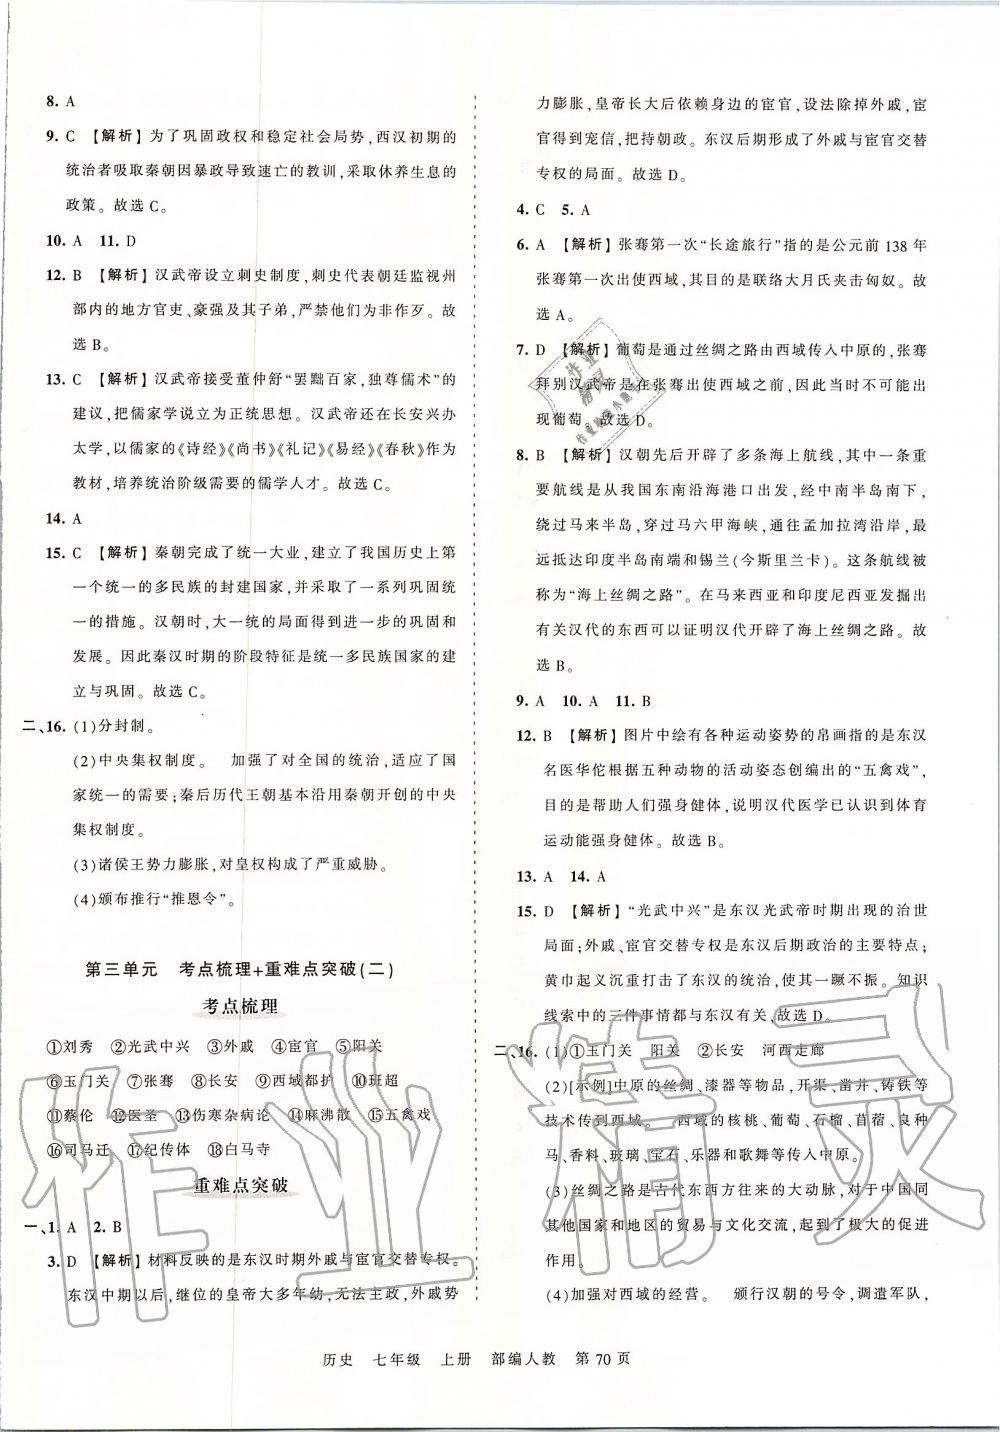 8. A
9. C 【解析】为了巩固政权和稳定社会局势,西汉初期的
统治者吸取秦朝因暴政导致速亡的教训,采取休养生息的
政策。故选C。
10. A 11. D
12. B 【解析】汉武帝设立刺史制度,刺史代表朝廷监视州
部内的地方官吏、豪强及其子弟,严禁他们为非作歹。故
选B。
13. C 【解析】汉武帝接受董仲舒“罢黜百家,独尊儒术”的
建议,把儒家学说立为正统思想。汉武帝还在长安兴办
太学,以儒家的《诗经》《尚书》《礼记》《易经》《春秋》作为
教材,培养统治阶级需要的儒学人才。故选C。
14. A
15. C 【解析】秦朝完成了统一大业,建立了我国历史上第
一个统一的多民族的封建国家,并采取了一系列巩固统
一的措施。汉朝时,大一统的局面得到进一步的巩固和
发展。因此秦汉时期的阶段特征是统一多民族国家的建
立与巩固。故选C。
二、16. (1)分封制。
(2)中央集权制度。 加强了对全国的统治,适应了国
家统一的需要;秦后历代王朝基本沿用秦朝开创的中央
集权制度。
(3)诸侯王势力膨胀,对皇权构成了严重威胁。
(4)颁布推行“推恩令”。
第三单元 考点梳理+重难点突破(二)
考点梳理
①刘秀 ②光武中兴 ③外戚 ④宦官 ⑤阳关
⑥玉门关 ⑦张骞 ⑧长安 ⑨西域都护 ⑩班超
⑪蔡伦 ⑫医圣 ⑬伤寒杂病论 ⑭麻沸散 ⑮五禽戏
⑯司马迁 ⑰纪传体 ⑱白马寺
重难点突破
一、1. A 2. B
3. D 【解析】材料反映的是东汉时期外戚与宦官交替专权。
东汉中期以后,继位的皇帝大多年幼,无法主政,外戚势
力膨胀,皇帝长大后依赖身边的宦官,设法除掉外戚,宦
官得到宠信,把持朝政。东汉后期形成了外戚与宦官交替
专权的局面。故选D。
4. C 5. A
6. A 【解析】张骞第一次“长途旅行”指的是公元前138年
张骞第一次出使西域,其目的是联络大月氏夹击匈奴。故
选A。
7. D 【解析】葡萄是通过丝绸之路由西域传入中原的,张骞
拜别汉武帝是在张骞出使西域之前,因此当时不可能出
现葡萄。故选D。
8. B 【解析】汉朝先后开辟了多条海上航线,其中一条重
要航线是从我国东南沿海港口出发,经中南半岛南下,
绕过马来半岛,穿过马六甲海峡,通往孟加拉湾沿岸,最
远抵达印度半岛南端和锡兰(今斯里兰卡)。这条航线被
称为“海上丝绸之路”。在马来西亚和印度尼西亚发掘出
有关汉代的东西可以证明汉代开辟了海上丝绸之路。故
选B。
9. A 10. A 11. B
12. B 【解析】图片中绘有各种运动姿势的帛画指的是东汉
名医华佗根据五种动物的活动姿态创编出的“五禽戏”,
目的是帮助人们强身健体,说明汉代医学已认识到体育
运动能强身健体。故选B。
13. A 14. A
15. D 【解析】“光武中兴”是东汉光武帝时期出现的治世
局面;外戚、宦官交替专权是东汉后期政治的主要特点;
黄巾起义沉重打击了东汉的统治,使其一蹶不振。知识
线索中的三件事情都与东汉有关,故选D。
二、16. (1)①玉门关 阳关 ②长安 河西走廊
(2)[示例]中原的丝绸、漆器等物品,开渠、凿井、铸铁等
技术传到西域。 西域的核桃、葡萄、石榴、苜蓿、良种
马、香料、玻璃、宝石、乐器和歌舞等传入中原。
(3)丝绸之路是古代东西方往来的大动脉,对于中国同
其他国家和地区的贸易与文化交流,起到了极大的促进
作用。
(4)加强对西域的经营。 颁行汉朝的号令,调遣军队,
历史 七年级 上册 部编人教 第70页
作业精灵